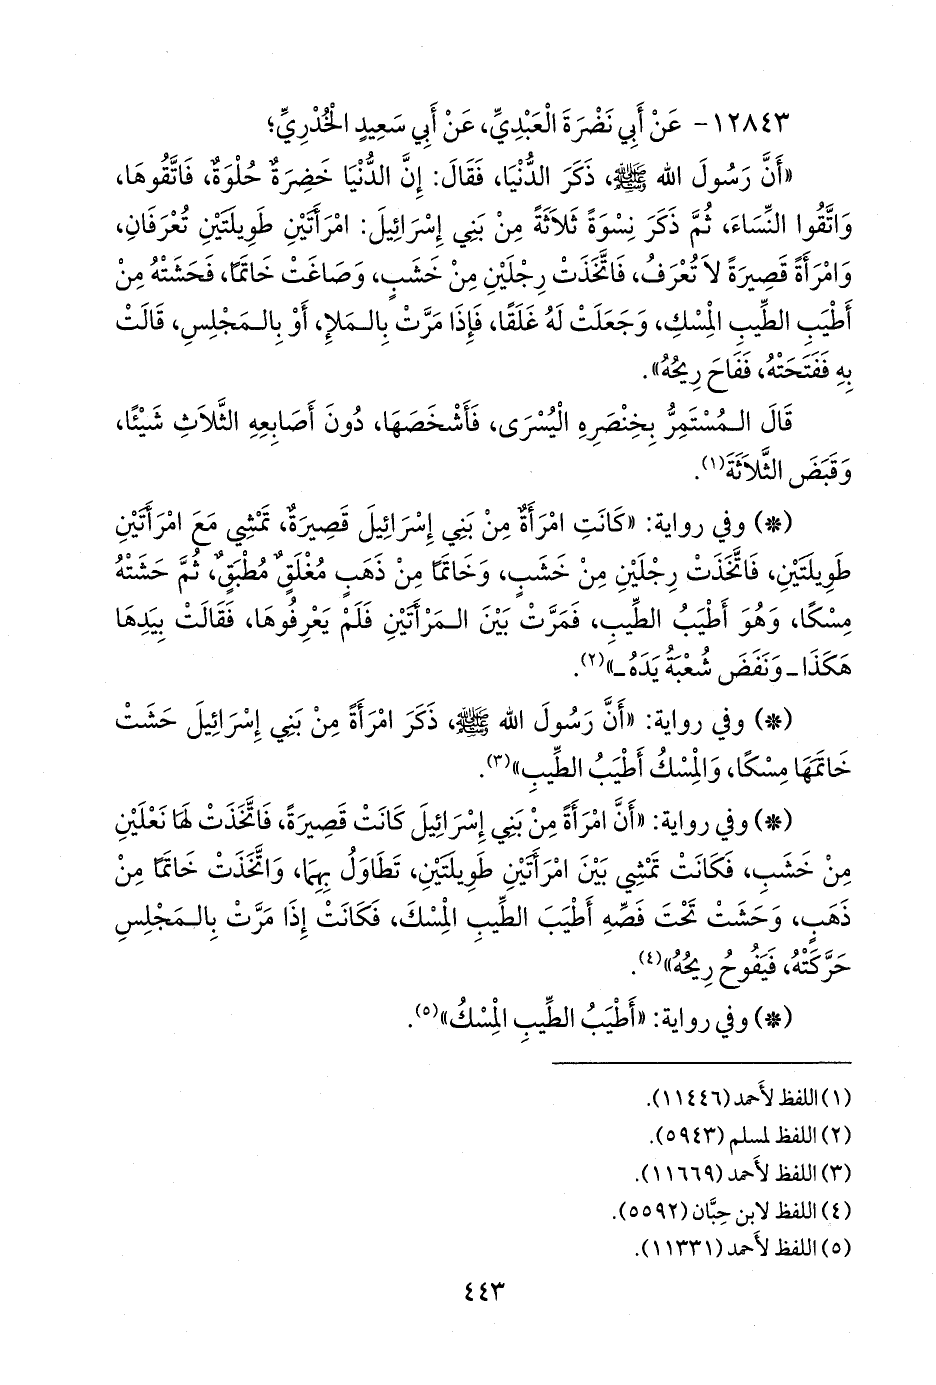 ١٢٨٤٣- عَنْ أَبِي نَضْرَةَ الْعَبْدِيِّ، عَنْ أَبِي سَعِيدٍ الْخُدْرِيِّ؛
«أَنَّ رَسُولَ الله ﷺ، ذَكَرَ الدُّنْيَا، فَقَالَ: إِنَّ الدُّنْيَا خَضِرَةٌ حُلْوَةٌ، فَاتَّقُوهَا،
وَاتَّقُوا النِّسَاءَ، ثُمَّ ذَكَرَ نِسْوَةً ثَلاَثَةً مِنْ بَنِي إِسْرَائِيلَ: امْرَأَتَيْنِ طَوِيلَتَيْنِ تُعْرَفَانِ،
وَامْرَأَةً قَصِيرَةً لاَ تُعْرَفُ، فَاتَّخَذَتْ رِجْلَيْنِ مِنْ خَشَبٍ، وَصَاغَتْ خَاتَمًا، فَحَشَتْهُ مِنْ
أَطْيَبِ الطِّيبِ الْمِسْكِ، وَجَعَلَتْ لَهُ غَلَقًا، فَإِذَا مَرَّتْ بِالْمَلإِ، أَوْ بِالْمَجْلِسِ، قَالَتْ
بِهِ فَفَتَحَتْهُ، فَفَاحَ رِيحُهُ».
قَالَ الْمُسْتَمِرُّ بِخِنْصَرِهِ الْيُسْرَى، فَأَشْخَصَهَا، دُونَ أَصَابِعِهِ الثَّلاَثِ شَيْئًا،
وَقَبَضَ الثَّلاَثَةَ(١).
(*) وفي رواية: «كَانَتِ امْرَأَةٌ مِنْ بَنِي إِسْرَائِيلَ قَصِيرَةٌ، تَمْشِي مَعَ امْرَأَتَيْنِ
طَوِيلَتَيْنِ، فَاتَّخَذَتْ رِجْلَيْنِ مِنْ خَشَبٍ، وَخَاتَمًا مِنْ ذَهَبٍ مُغْلَقٌ مُطْبَقٌ، ثُمَّ حَشَتْهُ
مِسْكًا، وَهُوَ أَطْيَبُ الطِّيبِ، فَمَرَّتْ بَيْنَ الْمَرْأَتَيْنِ فَلَمْ يَعْرِفُوهَا، فَقَالَتْ بِيَدِهَا
هَكَذَا ـ وَنَفَضَ شُعْبَةُ يَدَهُ ـ»(٢).
(*) وفي رواية: «أَنَّ رَسُولَ الله ﷺ، ذَكَرَ امْرَأَةً مِنْ بَنِي إِسْرَائِيلَ حَشَتْ
خَاتَمَهَا مِسْكًا، وَالْمِسْكُ أَطْيَبُ الطِّيبِ»(٣).
(*) وفي رواية: «أَنَّ امْرَأَةً مِنْ بَنِي إِسْرَائِيلَ كَانَتْ قَصِيرَةً، فَاتَّخَذَتْ لَهَا نَعْلَيْنِ
مِنْ خَشَبٍ، فَكَانَتْ تَمْشِي بَيْنَ امْرَأَتَيْنِ طَوِيلَتَيْنِ، تَطَاوَلُ بِهِمَا، وَاتَّخَذَتْ خَاتَمًا مِنْ
ذَهَبٍ، وَحَشَتْ تَحْتَ فَصِّهِ أَطْيَبَ الطِّيبِ الْمِسْكَ، فَكَانَتْ إِذَا مَرَّتْ بِالْمَجْلِسِ
حَرَّكَتْهُ، فَيَفُوحُ رِيحُهُ»(٤).
(*) وفي رواية: «أَطْيَبُ الطِّيبِ الْمِسْكُ»(٥).
(١) اللفظ لأَحمد (١١٤٤٦).
(٢) اللفظ لمسلم (٥٩٤٣).
(٣) اللفظ لأَحمد (١١٦٦٩).
(٤) اللفظ لابن حِبَّان (٥٥٩٢).
(٥) اللفظ لأَحمد (١١٣٣١).
٤٤٣